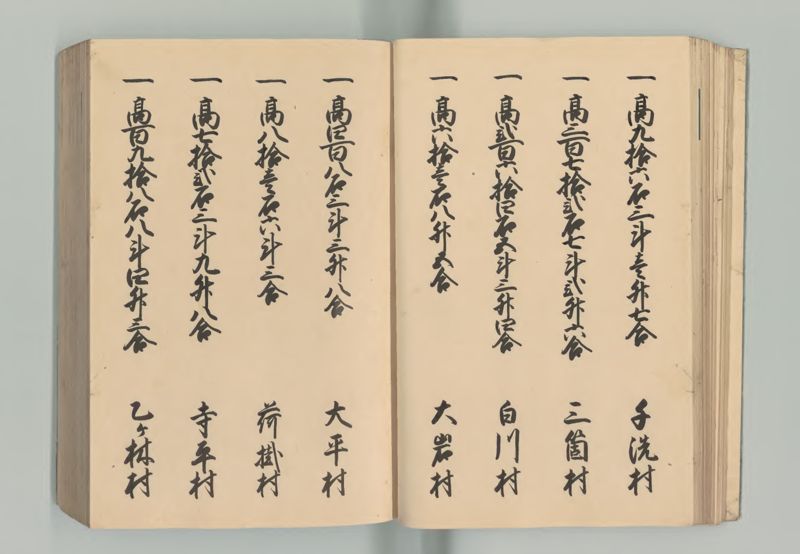 一 高九拾六石三斗壱升七合 手洗村
一 高三百七拾弐石七斗弐升六合 三箇村
一 高弐百六拾四石五斗三升四合 白川村
一 高六拾壱石八升五合 大岩村
一 高四百八石三斗三升八合 大平村
一 高八拾壱石六斗三合 荷掛村
一 高七拾弐石三斗九升八合 寺平村
一 高百九拾八石八斗四升三合 乙ヶ林村